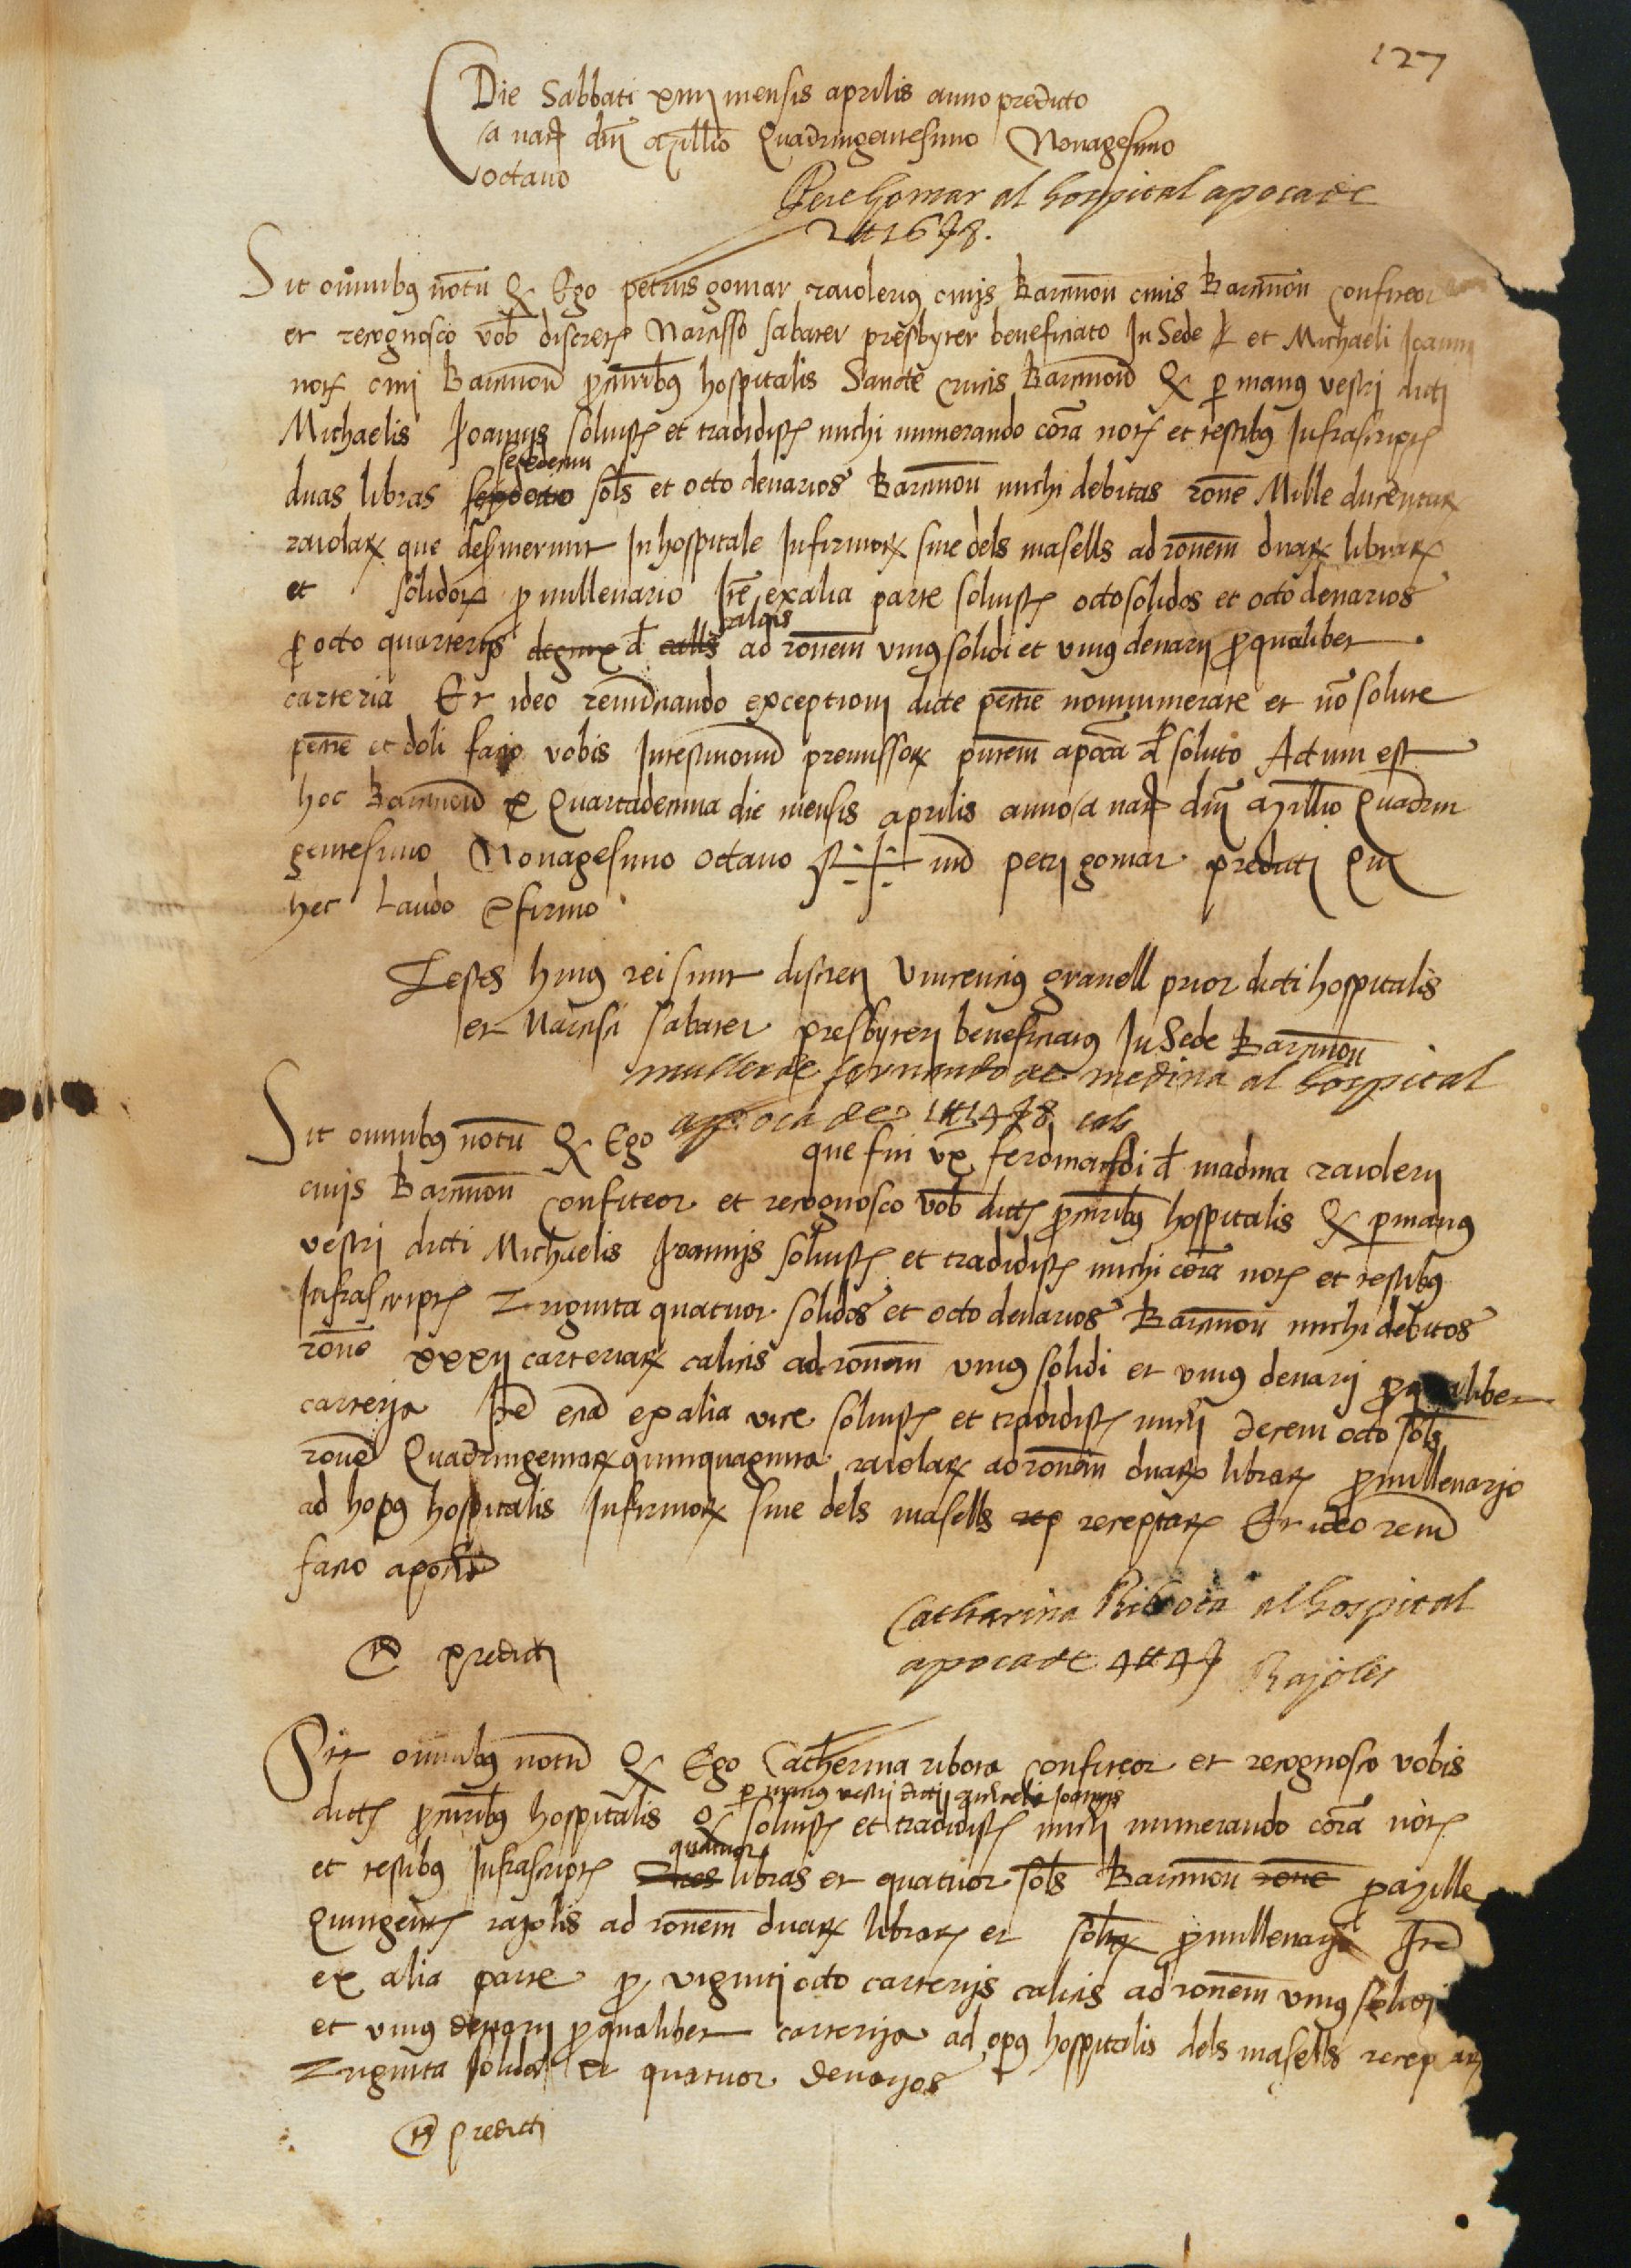 127
Die Sabbati xiiij mensis aprilis anno predicto
a nat dni Millio Quadringentesimo Nonagesimo
octavo
Pere Gomar al hospital apoca de
2 ₶ 16 s 8.
Sit omnibus notu q Ego petrus gomar raiolerius civis Barcinon civis Barcinon confiteor
et recognosco vob discret Narcisso sabater presbyter beneficiato In Sede et Michaeli Joanni
not civi Barcinon procuribus hospitalis Sancte crucis Barcinon q per manus vestri dicti
Michaelis Joannis solvist et tradidist michi numerando cora not et testibus Infrascript
duas libras sexdecim sols et octo denarios Barcinon michi debitas rone Mille ducentar
raiolar que desinerunt In hospitale Infirmor sive dels masells ad ronem duar librar
et solidor pro millenario Ite ex alia parte solvist octo solidos et octo denarios
pro octo quarteriis de calcis ad ronem unius solidi et unius denarii pro qualibet
carteria Et ideo renunciando exceptioni dicte pecnie non numerate et no solute
pecnie et doli facio vobis In testimoniu premissor pntem apoca de soluto Actum est
hoc Barcinon Quartadecima die mensis aprilis anno a nat dni Millio Quadrin
gentesimo Nonagesimo octavo S num petri gomar predicti Qui
hec Laudo et firmo
Testes huius rei sunt discreti Vincencius granell prior dicti hospitalis
et Narcisi sabater presbyteri beneficiatus In Sede Barcinon
muller de fernando de medina al hospital
apoca de 1 ₶ 14 s 8 cals
Sit omnibus notu q Ego que fui ux ferdinandi de madina raiolerii
civis Barcinon confiteor et recognosco vob dict procuribus hospitalis q per manus
vestri dicti Michaelis Joannis solvist et tradidist michi cora not et testibus
Infrascript Triginta quatuor solidos et octo denarios Barcinon michi debitos
rone xxxij carteriar calcis ad ronem unius solidi et unius denarii pro qualibet
carterya Ite ecia ex alia vice solvist et tradidist michi decem octo sols
rone Quadringentar quinquaginta raiolar ad ronem duar librar pro millenario
ad hopus hospitalis Infirmor sive dels masells receptar Et ideo renu
facio apocha
T predicti
Catharina Ribota al hospital
apoca de 4 ₶ 4 s Rajoles
Sit omnibus notu q Ego Catherina ribota confiteor et recognosco vobis
per manus vestri dicti Michaelis Joannis
dict procuribus hospitalis q solvist et tradidist michi numerando cora not
quatuor
et testibus Infrascript Tres libras et quatuor sols Barcinon rone pro Mille
Quingent rajolis ad ronem duar librar et solidor pro millenario Ite
ex alia parte pro viginti octo carterijs calcis ad ronem unius solidi
et unius denarii pro qualibet carterija ad opus hospitalis dels masells recep
Triginta solidos et quatuor denarios
T predicti